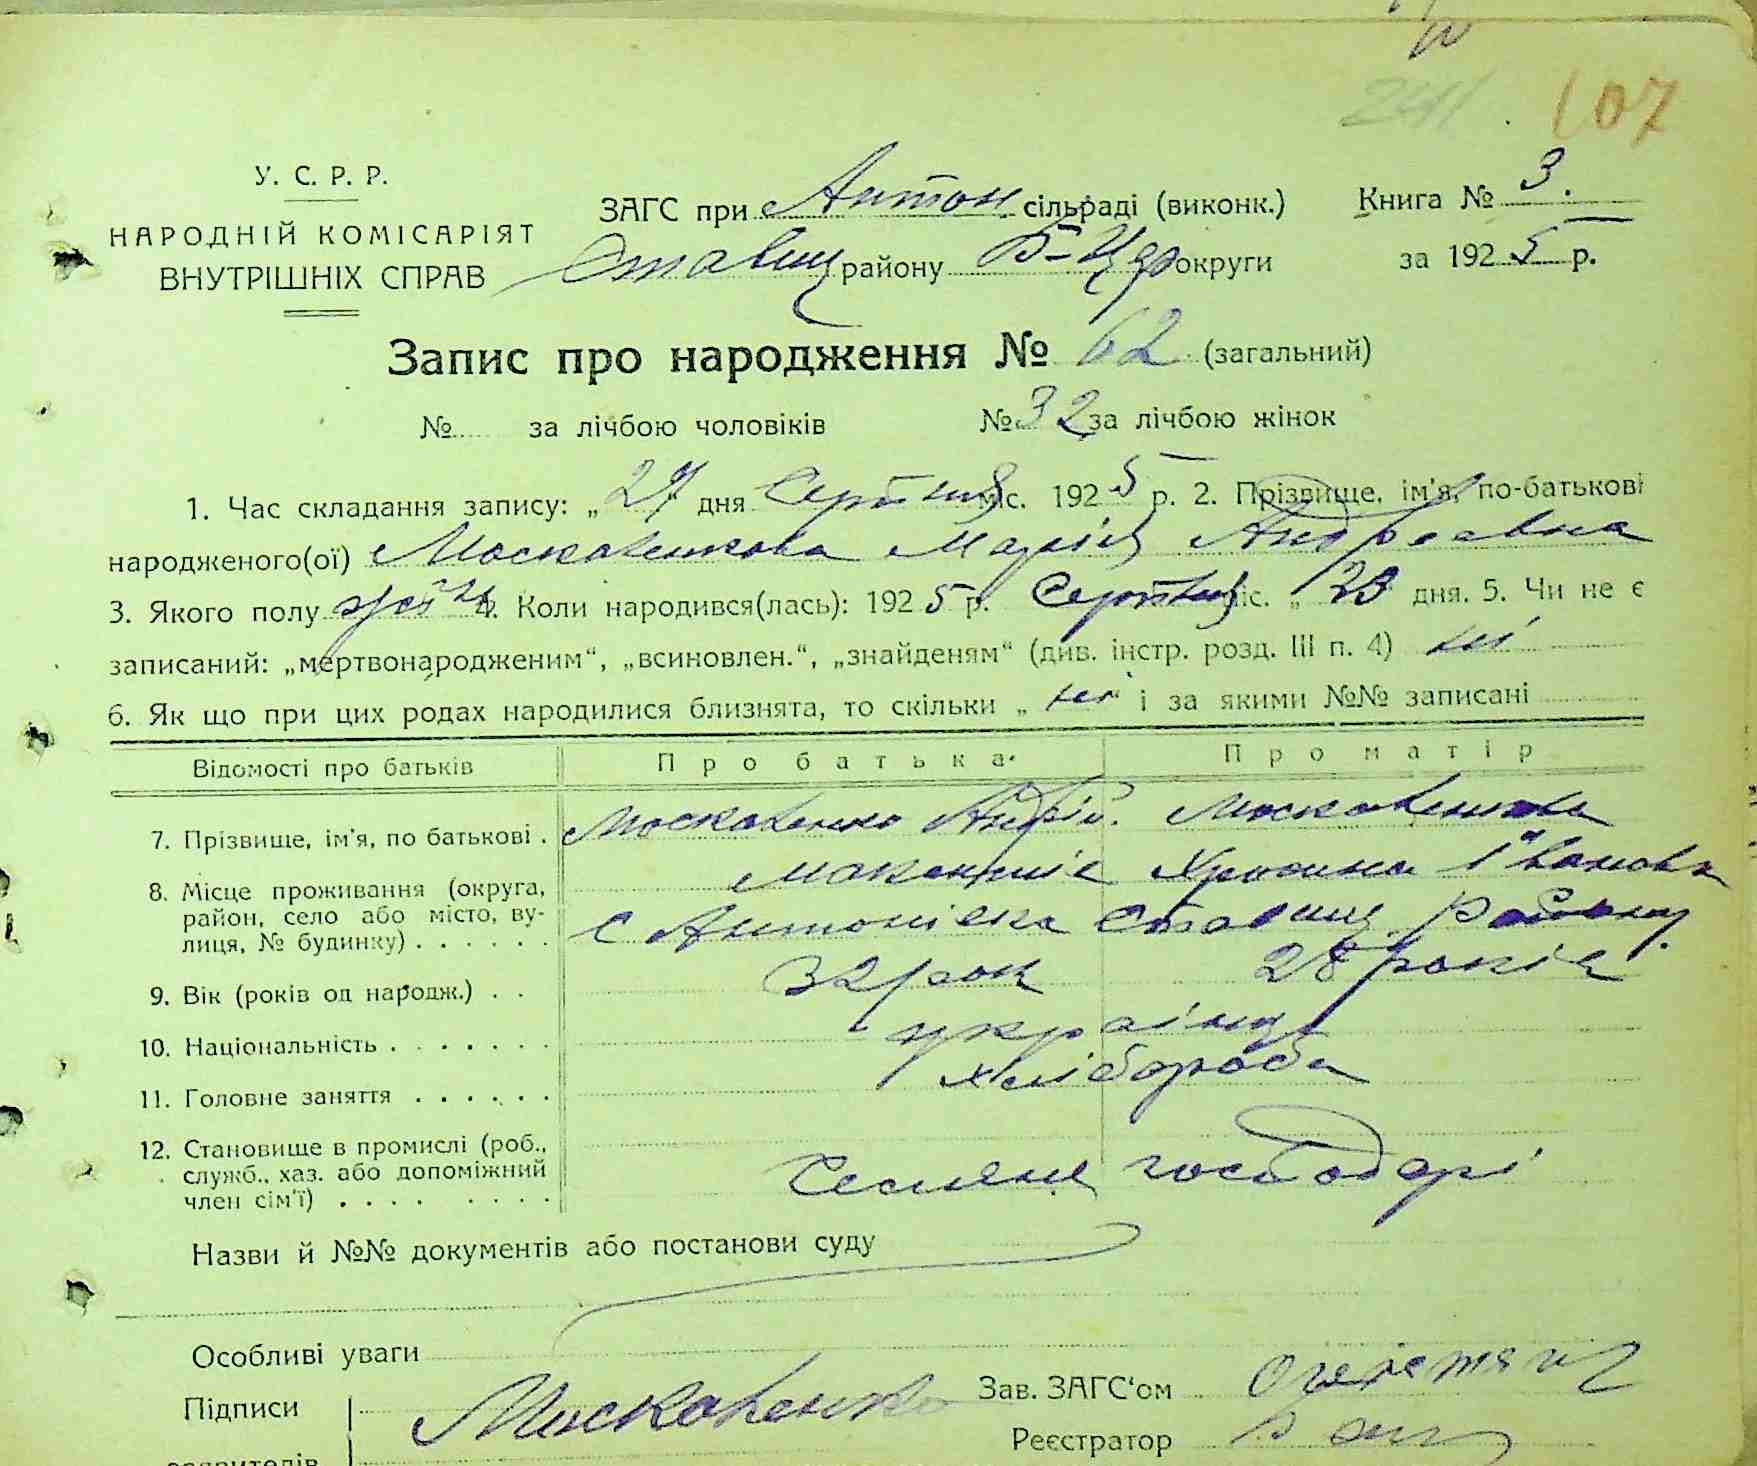 241 107
У. С. Р. Р.
НАРОДНІЙ КОМІСАРІЯТ
ВНУТРІШНІХ СПРАВ
ЗАГС при Антон сільраді (виконк.) Книга № 3.
Ставищ району Б-Цер округи за 1925 р.
Запис про народження № 62 (загальний)
№ за лічбою чоловіків № 32 за лічбою жінок
1. Час складання запису: „27 дня Серпня міс. 1925 р. 2. Прізвище, ім'я, по-батькові
народженого(ої) Москаленкова Марія Андреевна
3. Якого полу жін 4. Коли народився(лась): 1925 р. Серпня міс. „23 дня. 5. Чи не є
записаний: „мертвонародженим“, „всиновлен.“, „знайденям“ (див. інстр. розд. III п. 4) ні
6. Як що при цих родах народилися близнята, то скільки „ні“ і за якими №№ записані
Відомості про батьків Про батька Про матір
7. Прізвище, ім'я, по батькові . Москаленко Андрій Москаленкова
Іванова
8. Місце проживання (округа,
район, село або місто, ву-
лиця, № будинку) . . . . . . с Антонівка Ставищ району
9. Вік (років од народж.) . . 32 рок 28 років
10. Національність . . . . . . . українці
11. Головне заняття . . . . . . хлібороби
12. Становище в промислі (роб.,
служб., хаз. або допоміжний
член сім'ї) . . . . . . . . Селяне господарі
Назви й №№ документів або постанови суду
Особливі уваги
Підписи Москаленко Зав. ЗАГС'ом
Реєстратор
заявителів